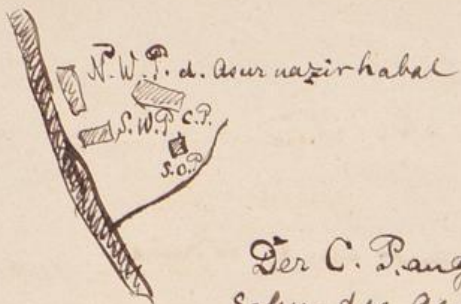 N. W. P. d. Asur nazirhabal
S. W. P. C. P.
S. O. P.
Der C. P. ang